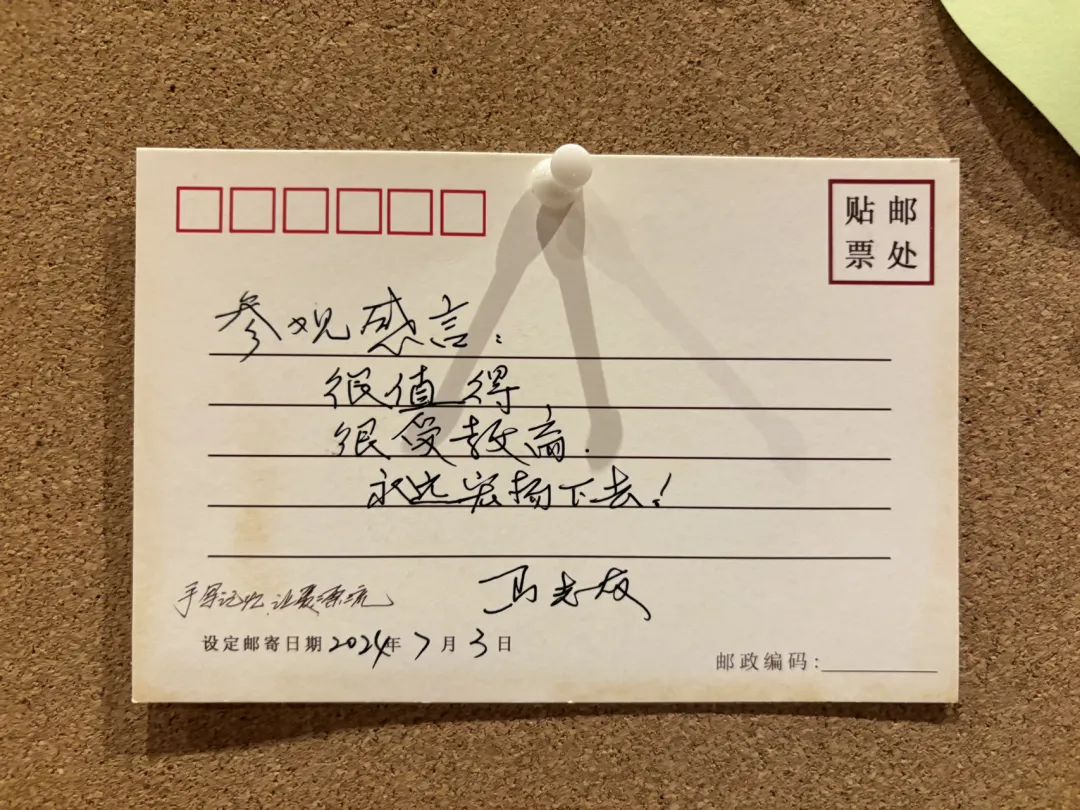 贴邮
票处
参观感言：
很值得,
很受教育.
永远宏扬下去！
手写记忆,让爱流
设定邮寄日期2024年7月3日
邮政编码: